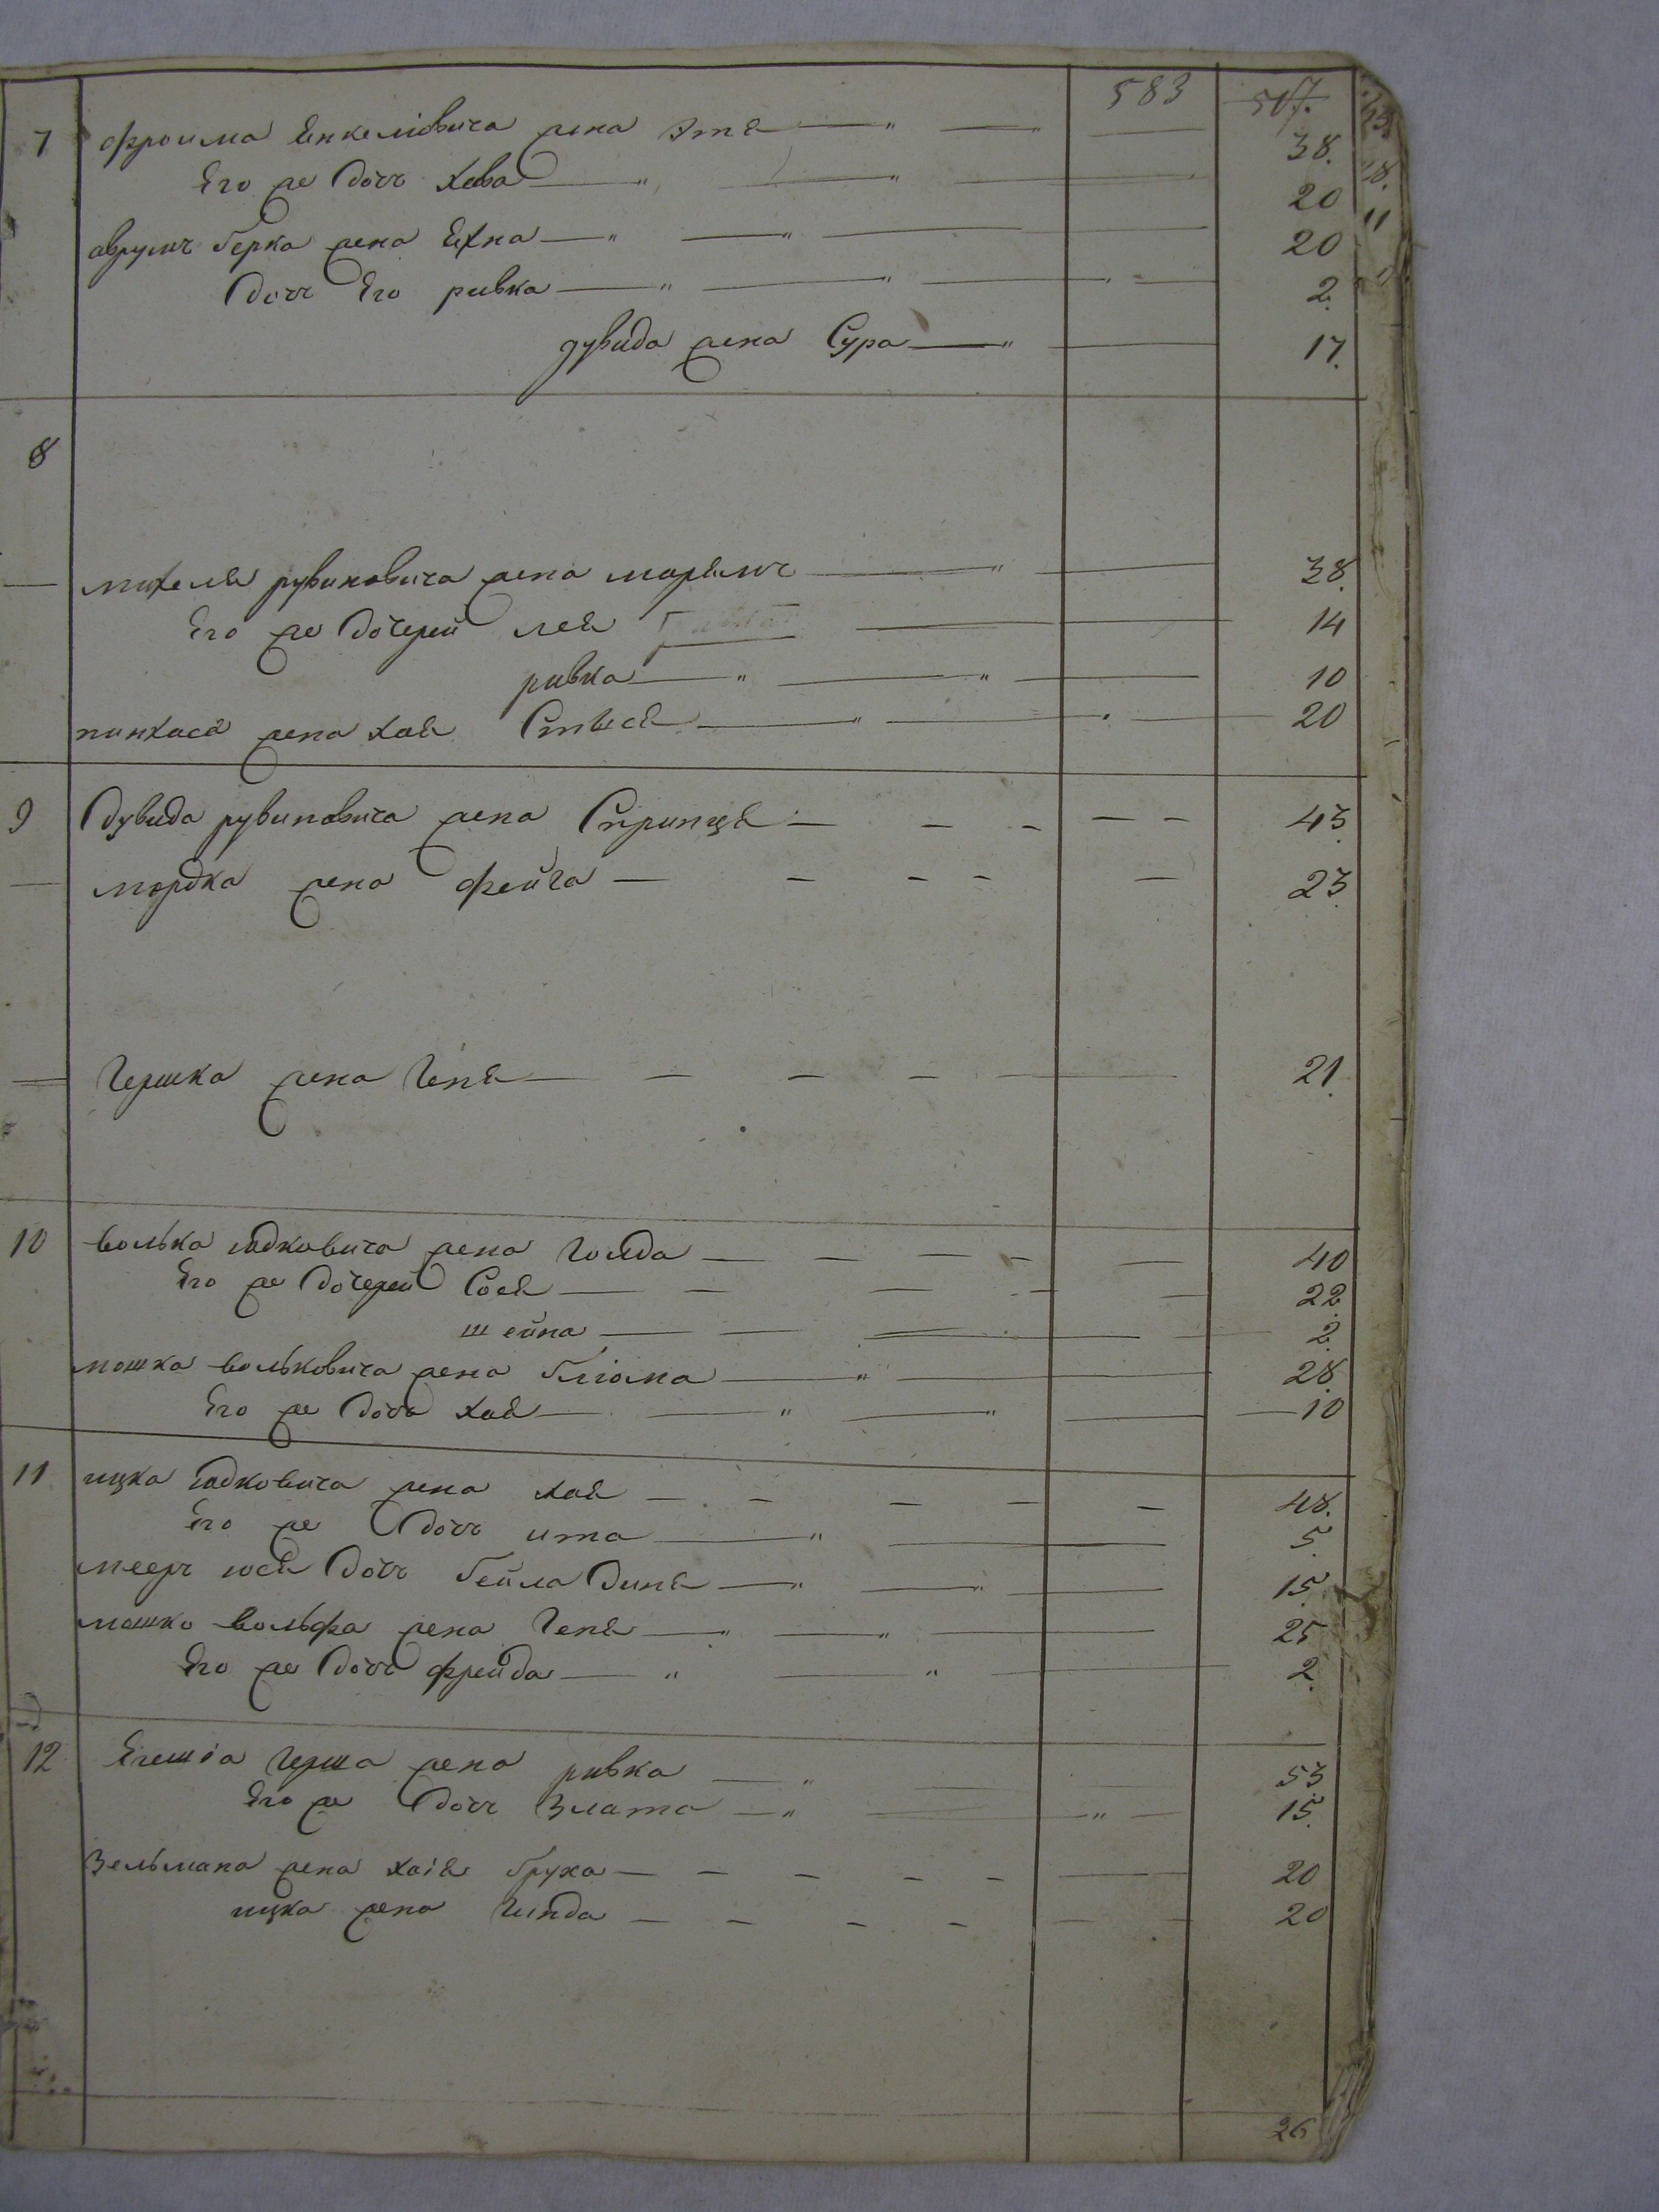 583 517.
7 Фроима Янкеліовича жена Этя 38.
Его же дочь Хава 20
Аврумъ Берка жена Ехна 20
дочь Его ривка 2.
дувида жена Сура 17.
8
михеля рувиновича жена марямъ 38
Его же дочерей лея 14
ривка 10
пинхаса жена хая Стыся 20
9 Дувида рувиновича жена Спринця 43.
мордка жена фейга 23
Гершка жена Геня 21.
10 волька юдковича жена Голда 40
Его же дочерей Сося 22
шейна 2
мошка вольковича жена блюма 28
Его же дочь хая 10
11 ицка юдковича жена хая 48.
Его же дочь ита 5
мееръ юся дочь бейла Диня 15.
мошко вольфа жена Геня 25
Его же дочь фрейда 2.
12 Егешіа Герша жена ривка 53
Его же дочь Злата 15.
Зельмана жена хаія бруха 20
ицка жена Гинда 20
26